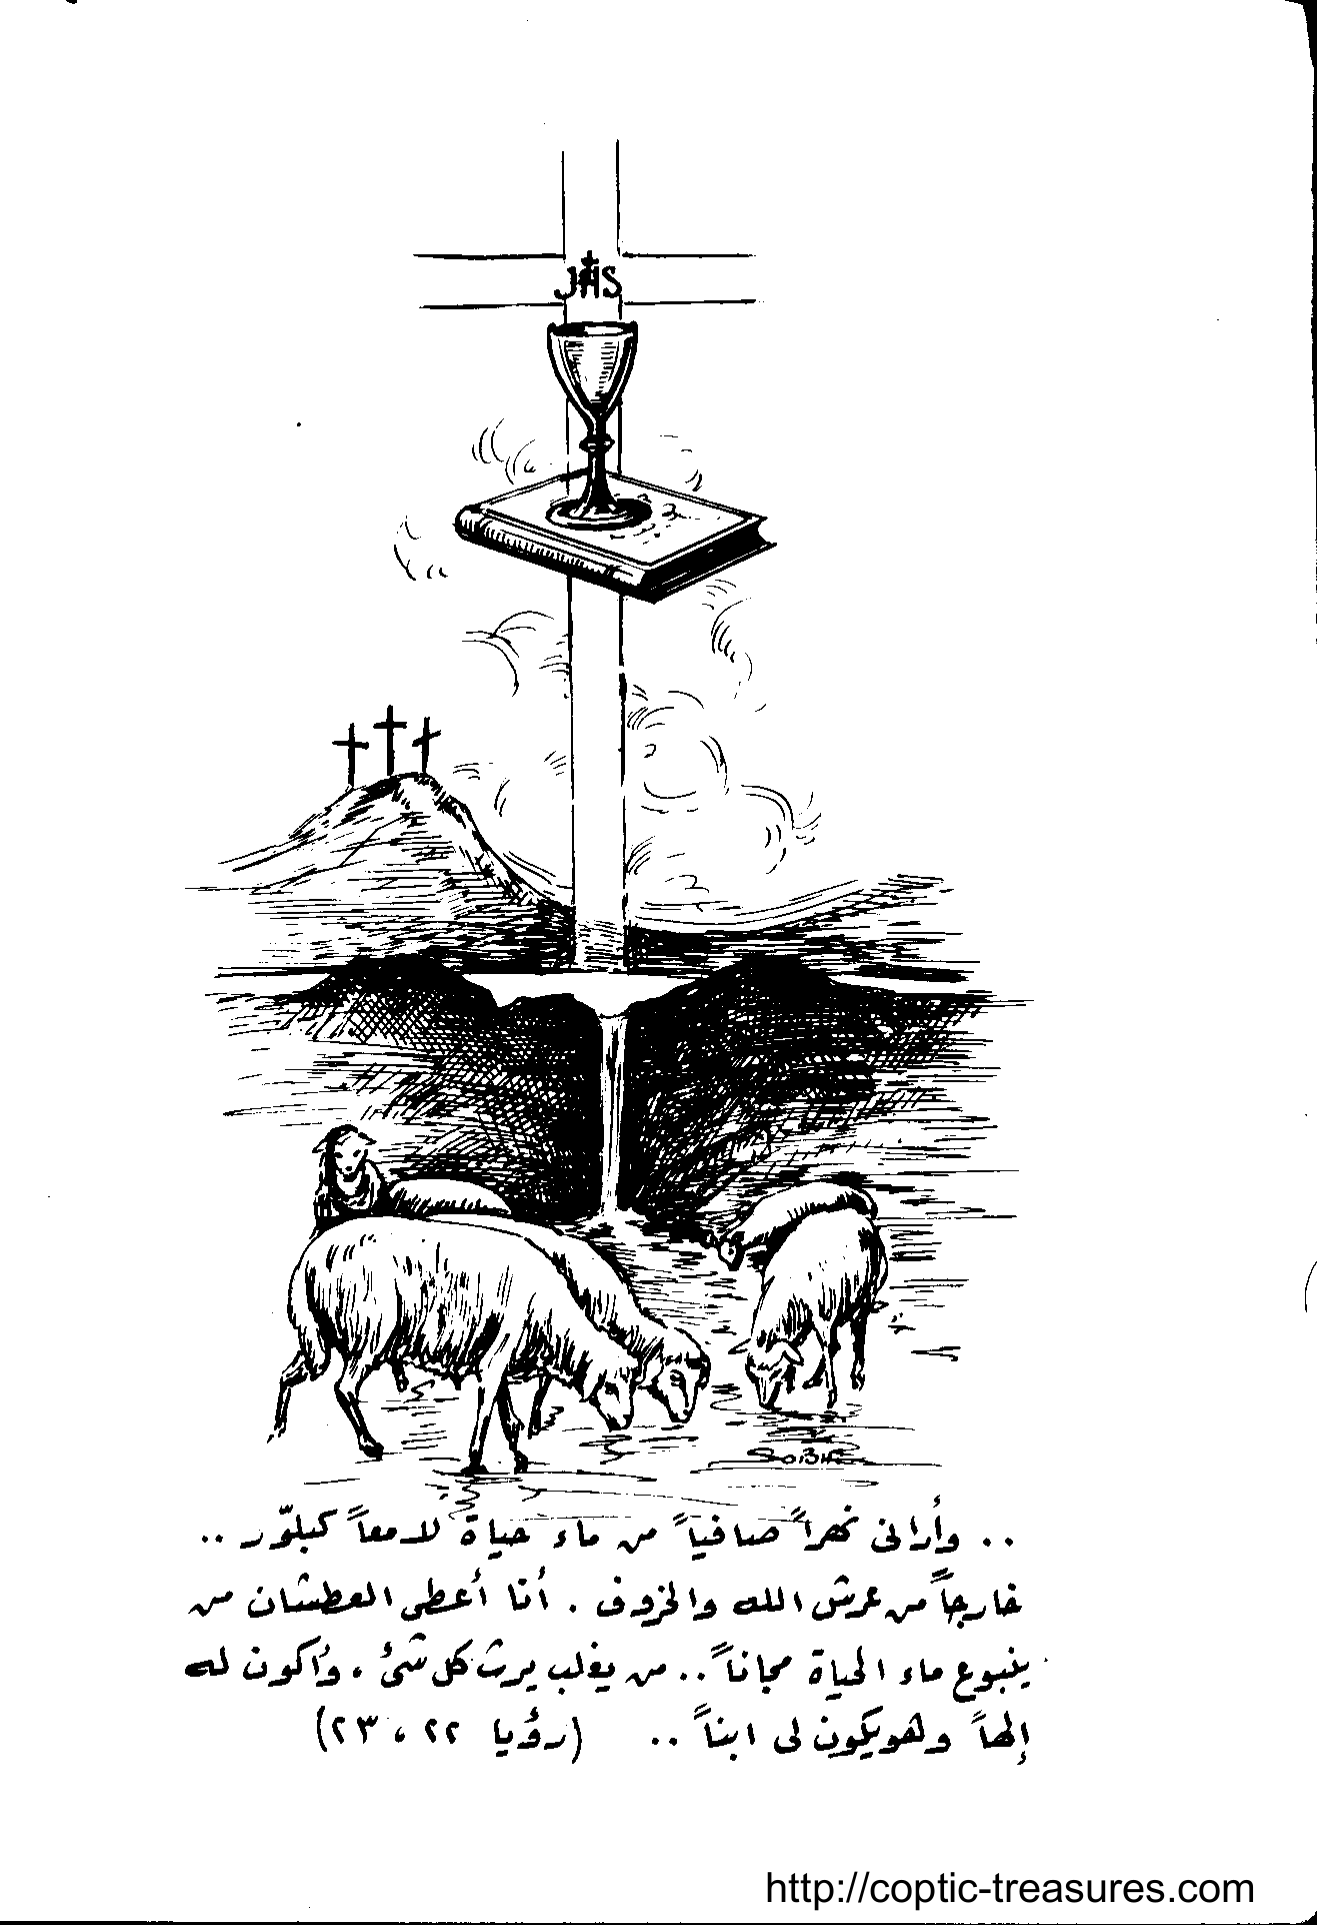 JHS
SOBHI
.. وأرانى نهراً صافياً من ماء حياة لامعاً كبلّور ..
خارجاً من عرش الله والخروف . أنا أعطى العطشان من
ينبوع ماء الحياة مجاناً .. من يغلب يرث كل شئ ، وأكون له
إلهاً وهو يكون لى ابناً .. (رؤيا ٢٢ ، ٢٣)
http://coptic-treasures.com